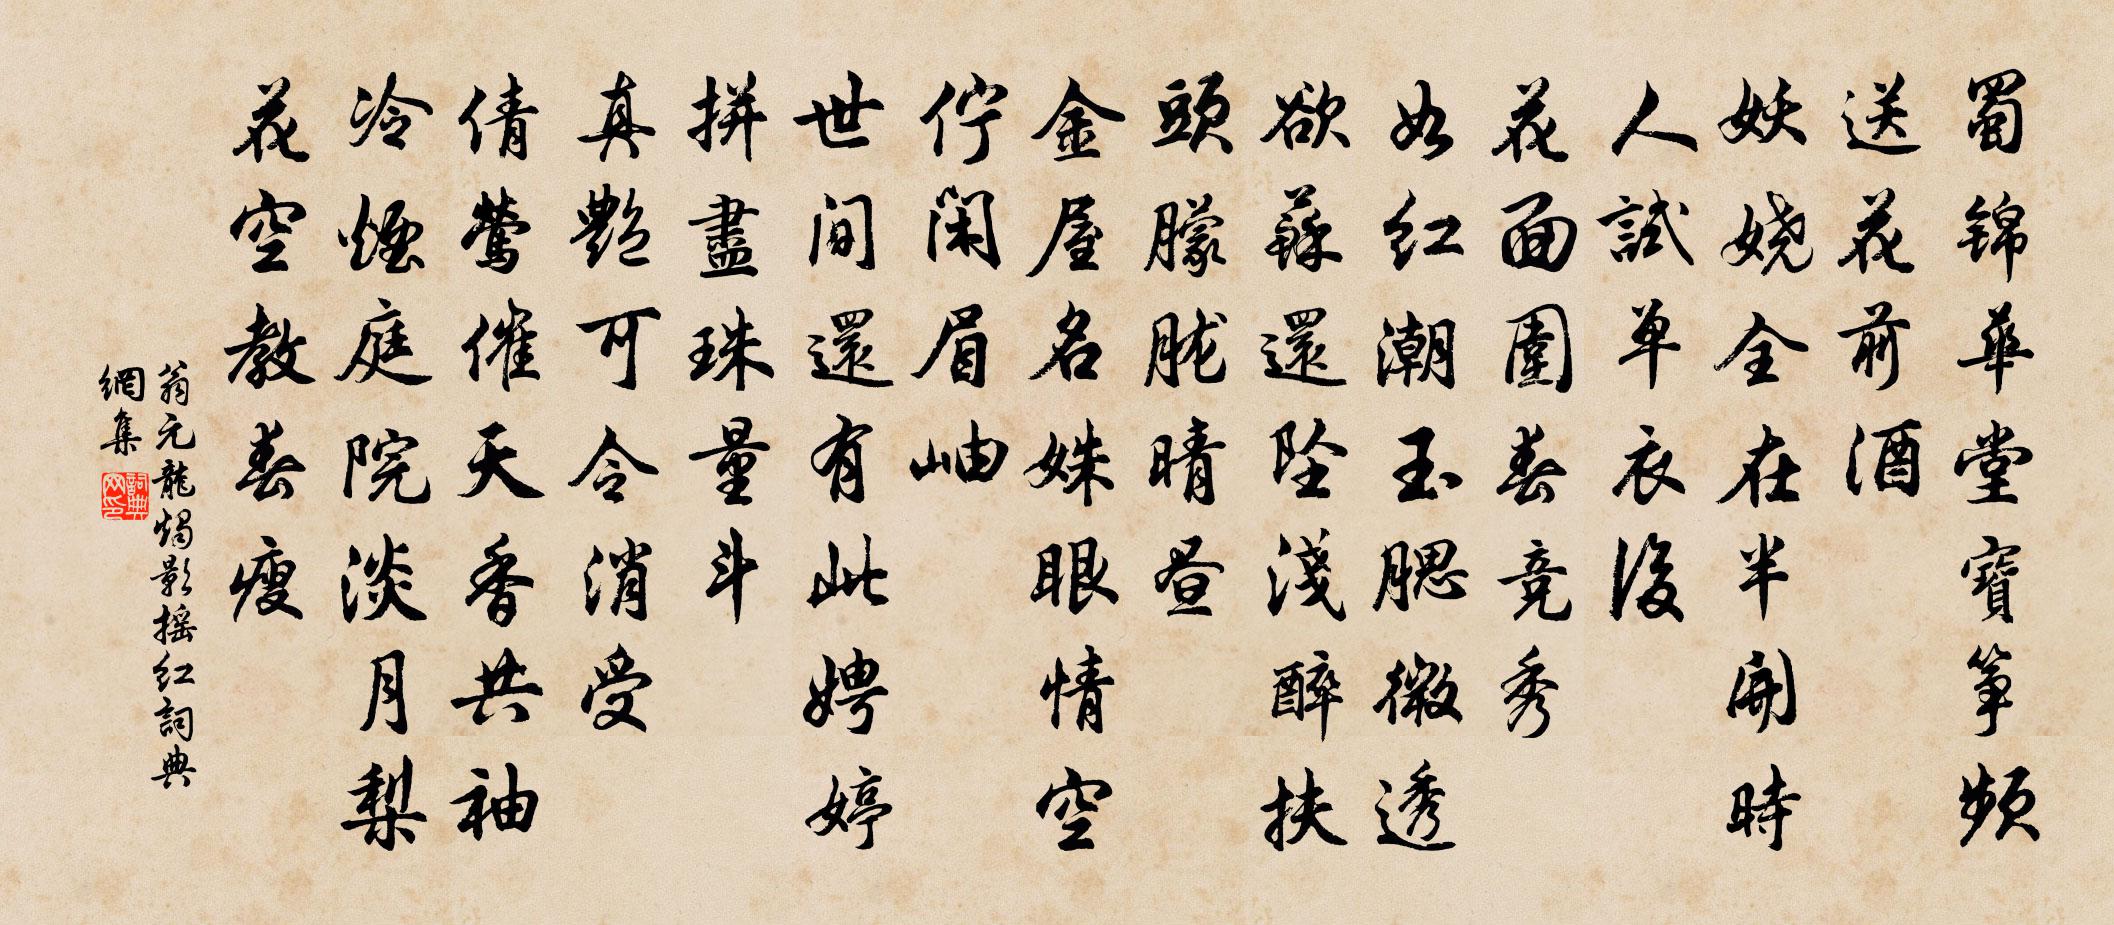 蜀錦華堂寶箏頻
送花前酒
妖嬈全在半開時
人試單衣後
花面圍春競秀
如紅潮玉腮微透
欲蘇還墜淺醉扶
頭朦朧晴晝
金屋名姝眼情空
佇閑眉岫
世間還有此娉婷
拼盡珠量斗
真艷可令消受
倩鶯催天香共袖
冷煙庭院淡月梨
花空教春瘦
翁元龍燭影搖紅詞典
網集
詞典網印